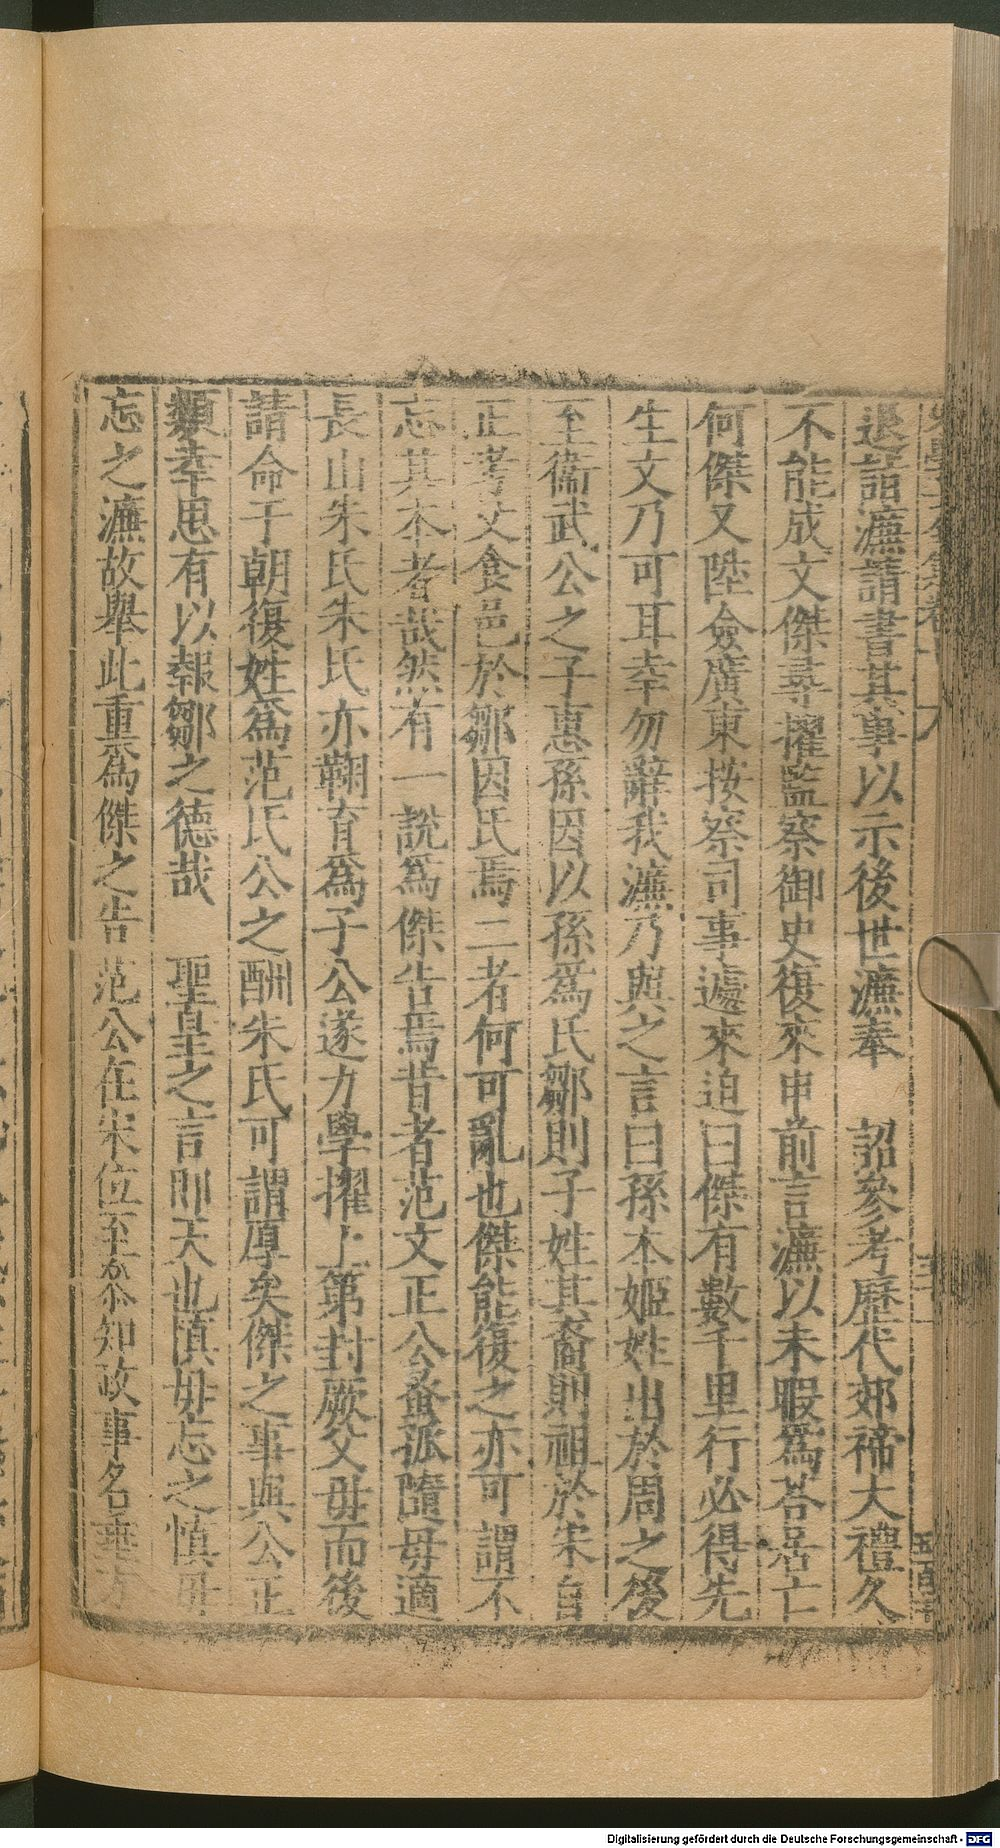 退詣濂請書其事以示後世濂奉 詔參考歷代郊禘大禮久
不能成文傑尋擢監察御史復來申前言濂以未暇為荅居亡
何傑又陞僉廣東按察司事遽來迫曰傑有數千里行必得先
生文乃可耳幸勿辭我濂乃與之言曰孫本姬姓出於周之後
至衞武公之子惠孫因以孫為氏鄒則子姓其裔則祖於宋自
正考父食邑於鄒因氏焉二者何可亂也傑能復之亦可謂不
忘其本者哉然有一說為傑告焉昔者范文正公蚤孤隨母適
長山朱氏朱氏亦鞠育為子公遂力學擢上第封厥父母而後
請命于朝復姓為范氏公之酬朱氏可謂厚矣傑之事與公正
類幸思有以報鄒之德哉 聖皇之言即天也慎毋忘之慎毋
忘之濂故舉此重為傑之告 范公在宋位至叅知政事名垂方
五百
Digitalisierung gefördert durch die Deutsche Forschungsgemeinschaft - DFG